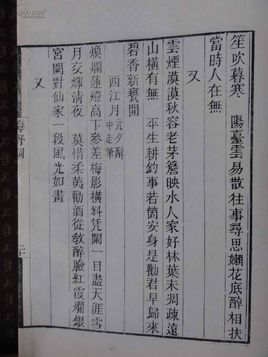 笙吹暮寒　陽臺雲易散往事尋思嬾花底醉相扶
當時人在無
又
雲煙漠漠秋容老茅簷映水人家好林葉未凋疎遠
山橫有無　平生耕釣事若箇安身是勸君早歸來
碧香新甕開
西江月
煥爛蓮燈高下參差梅影橫斜凭闌一目盡天涯雪
月交輝清夜　莫惜柔荑勸酒從教醉臉紅霞爛銀
宮闕對仙家一段風光如畫
又